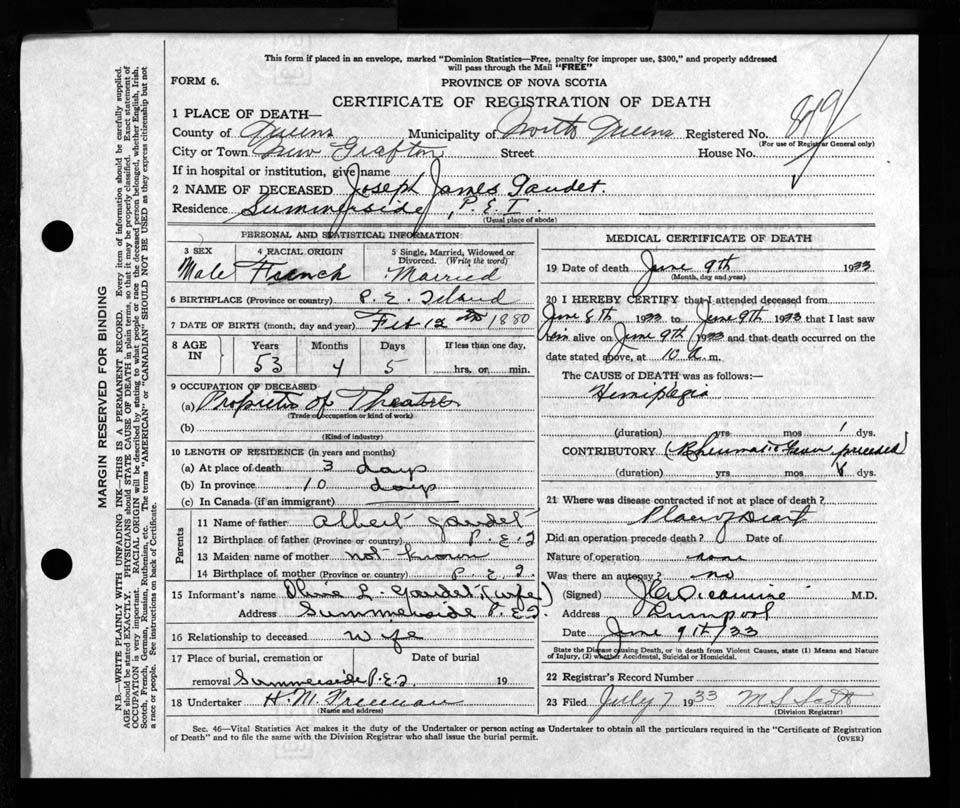 This form if placed in an envelope, marked "Dominion Statistics—Free, penalty for improper use, $300," and properly addressed
will pass through the Mail "FREE"
FORM 6. PROVINCE OF NOVA SCOTIA
CERTIFICATE OF REGISTRATION OF DEATH
1 PLACE OF DEATH—
County of Queens Municipality of North Queens Registered No. 849
(For use of Registrar General only)
City or Town New Grafton Street House No.
If in hospital or institution, give name
2 NAME OF DECEASED Joseph James Gaudet.
Residence Summerside, P.E.I.
(Usual place of abode)
PERSONAL AND STATISTICAL INFORMATION
3 SEX 4 RACIAL ORIGIN 5 Single, Married, Widowed or
Divorced. (Write the word)
Male French Married
6 BIRTHPLACE (Province or country) P.E. Island
7 DATE OF BIRTH (month, day and year) Feb 12 1880
8 AGE IN Years Months Days If less than one day,
53 4 5 hrs, or min.
9 OCCUPATION OF DECEASED
(a) Proprietor of Theatre
(Trade occupation or kind of work)
(b)
(Kind of industry)
10 LENGTH OF RESIDENCE (in years and months)
(a) At place of death 3 days
(b) In province 10 days
(c) In Canada (if an immigrant)
Parents
11 Name of father Albert Gaudet
12 Birthplace of father (Province or country) P.E.I
13 Maiden name of mother not known
14 Birthplace of mother (Province or country) P.E.I.
15 Informant's name L. Gaudet (wife)
Address Summerside P.E.I
16 Relationship to deceased wife
17 Place of burial, cremation or Date of burial
removal Summerside P.E.I. 19
18 Undertaker H.M. Freeman
(Name and address)
MEDICAL CERTIFICATE OF DEATH
19 Date of death June 9th 1933
(Month, day and year)
20 I HEREBY CERTIFY that I attended deceased from
June 8th 1933 to June 9th 1933 that I last saw
him alive on June 9th 1933 and that death occurred on the
date stated above, at 10 a.m.
The CAUSE of DEATH was as follows:—
Hemiplegia
(duration) yrs mos 1 dys.
CONTRIBUTORY (Rheumatic Fever preceded)
(duration) yrs mos 8 dys.
21 Where was disease contracted if not at place of death?
Place of Death
Did an operation precede death? Date of
Nature of operation none
Was there an autopsy? no
(Signed) M.D.
Address Liverpool
Date June 9th/33
State the Disease causing Death, or in death from Violent Causes, state (1) Means and Nature
of Injury, (2) whether Accidental, Suicidal or Homicidal.
22 Registrar's Record Number
23 Filed July 7 1933 M S Scott
(Division Registrar)
Sec. 46—Vital Statistics Act makes it the duty of the Undertaker or person acting as Undertaker to obtain all the particulars required in the "Certificate of Registration
of Death" and to file the same with the Division Registrar who shall issue the burial permit. (OVER)
MARGIN RESERVED FOR BINDING
N.B.—WRITE PLAINLY WITH UNFADING INK—THIS IS A PERMANENT RECORD. Every item of information should be carefully supplied.
AGE should be stated EXACTLY. PHYSICIANS should STATE CAUSE OF DEATH in plain terms, so that it may be properly classified. Exact statement of
OCCUPATION is very important. RACIAL ORIGIN will be described by stating to what people or race the deceased person belonged, whether English, Irish,
Scotch, French, German, Russian, Ruthenian, etc. The terms "AMERICAN" or "CANADIAN" SHOULD NOT BE USED as they express citizenship but not
a race or people. See instructions on back of Certificate.